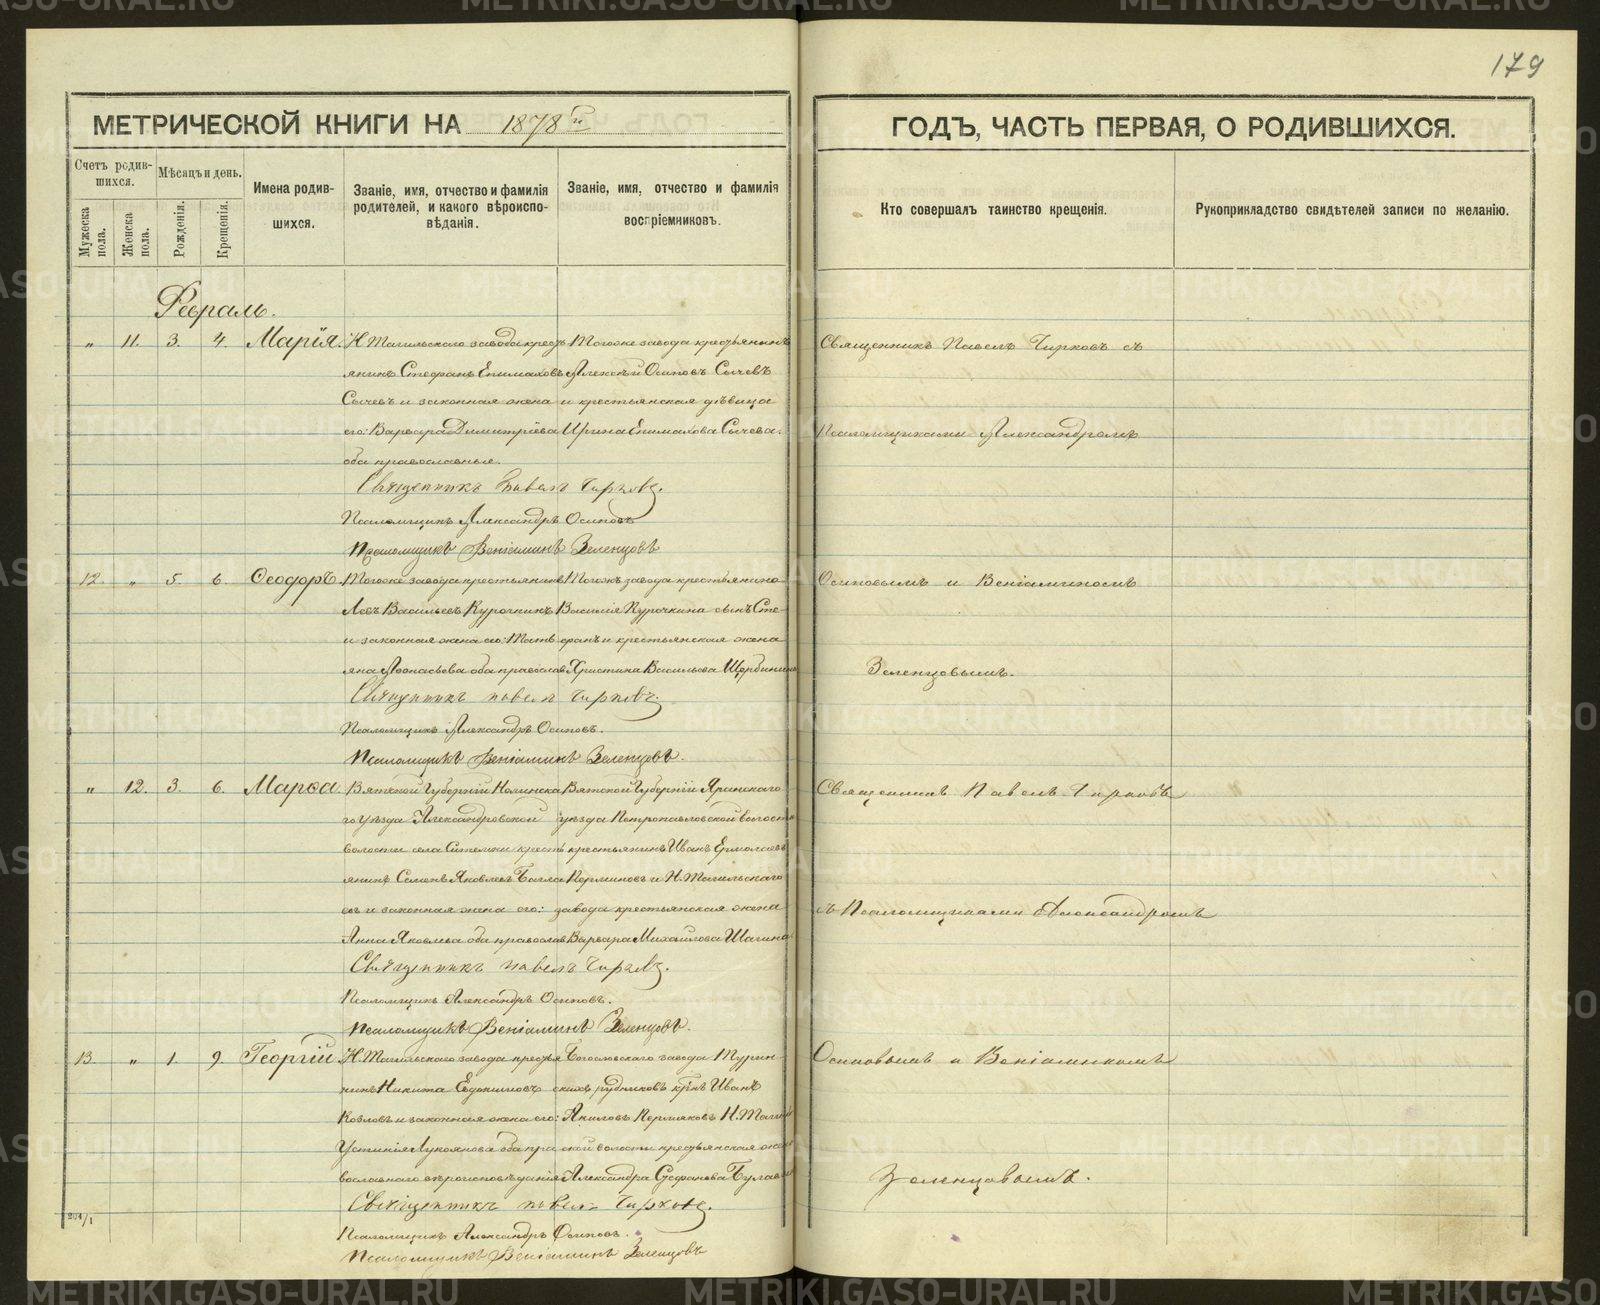 179
МЕТРИЧЕСКОЙ КНИГИ НА 1878й
ГОДЪ, ЧАСТЬ ПЕРВАЯ, О РОДИВШИХСЯ.
Счетъ родив-
шихся.
Мужеска пола.
Женска пола.
Мѣсяцъ и день.
Рожденія.
Крещенія.
Имена родив-
шихся.
Званіе, имя, отчество и фамилія
родителей, и какого вѣроиспо-
вѣданія.
Званіе, имя, отчество и фамилія
воспріемниковъ.
Кто совершалъ таинство крещенія.
Рукоприкладство свидѣтелей записи по желанію.
Февраль.
" 11. 3. 4. Марія. Н Тагильскаго завода крестъ Тогоже завода крестьянинъ
янинъ Стефанъ Епимаховъ Алексѣй Осиповъ Сычевъ
Сычевъ и законная жена и крестьянская дѣвица
его: Варвара Димитріева Ирина Епимахова Сычева.
оба православные.
Священникъ Павелъ Чирковъ.
Псаломщикъ Александръ Осиповъ
Псаломщикъ Веніаминъ Зеленцовъ
Священникъ Павелъ Чирковъ съ
Псаломщиками Александромъ
12. " 5. 6. Ѳеодоръ. Тогоже завода крестьянинъ Тогожъ завода крестьянина
Левъ Васильевъ Курочкинъ Василія Курочкина сынъ Сте-
и законная жена его: Тать фанъ и крестьянская жена
яна Аѳонасьева оба православ Христина Васильева Щербинина
Священникъ Павелъ Чирковъ.
Псаломщикъ Александръ Осиповъ.
Псаломщикъ Веніаминъ Зеленцовъ.
Осиповымъ и Веніаминомъ
Зеленцовымъ.
" 12. 3. 6. Марѳа. Вятской Губерніи Нолинска Вятской Губерніи Яранскаго
го уѣзда Александровской уѣзда Петропавловской волости
волости села крестъ крестьянинъ Иванъ Ермолаевъ
янинъ Семенъ Яковлевъ и Н. Тагильскаго
и законная жена его: завода крестьянская жена
Анна Яковлева оба православ Варвара Михайлова Шагина
Священникъ Павелъ Чирковъ.
Псаломщикъ Александръ Осиповъ.
Псаломщикъ Веніаминъ Зеленцовъ.
Священникъ Павелъ Чирковъ
съ Псаломщиками Александромъ
13. " 1. 9. Георгій. Н. Тагильскаго завода крестья Богословскаго завода Турин-
нинъ Никита Евдокимовъ скихъ рудниковъ Иванъ
Козловъ и законная жена его: Пермяковъ Н. Тагиль
Устинія Лукоянова оба пра ской волости крестьянская жена
вославнаго вѣроисповѣданія Александра Стефанова
Священникъ Павелъ Чирковъ.
Псаломщикъ Александръ Осиповъ.
Псаломщикъ Веніаминъ Зеленцовъ
Осиповымъ и Веніаминомъ
Зеленцовымъ.
204/1
METRIKI.GASO-URAL.RU